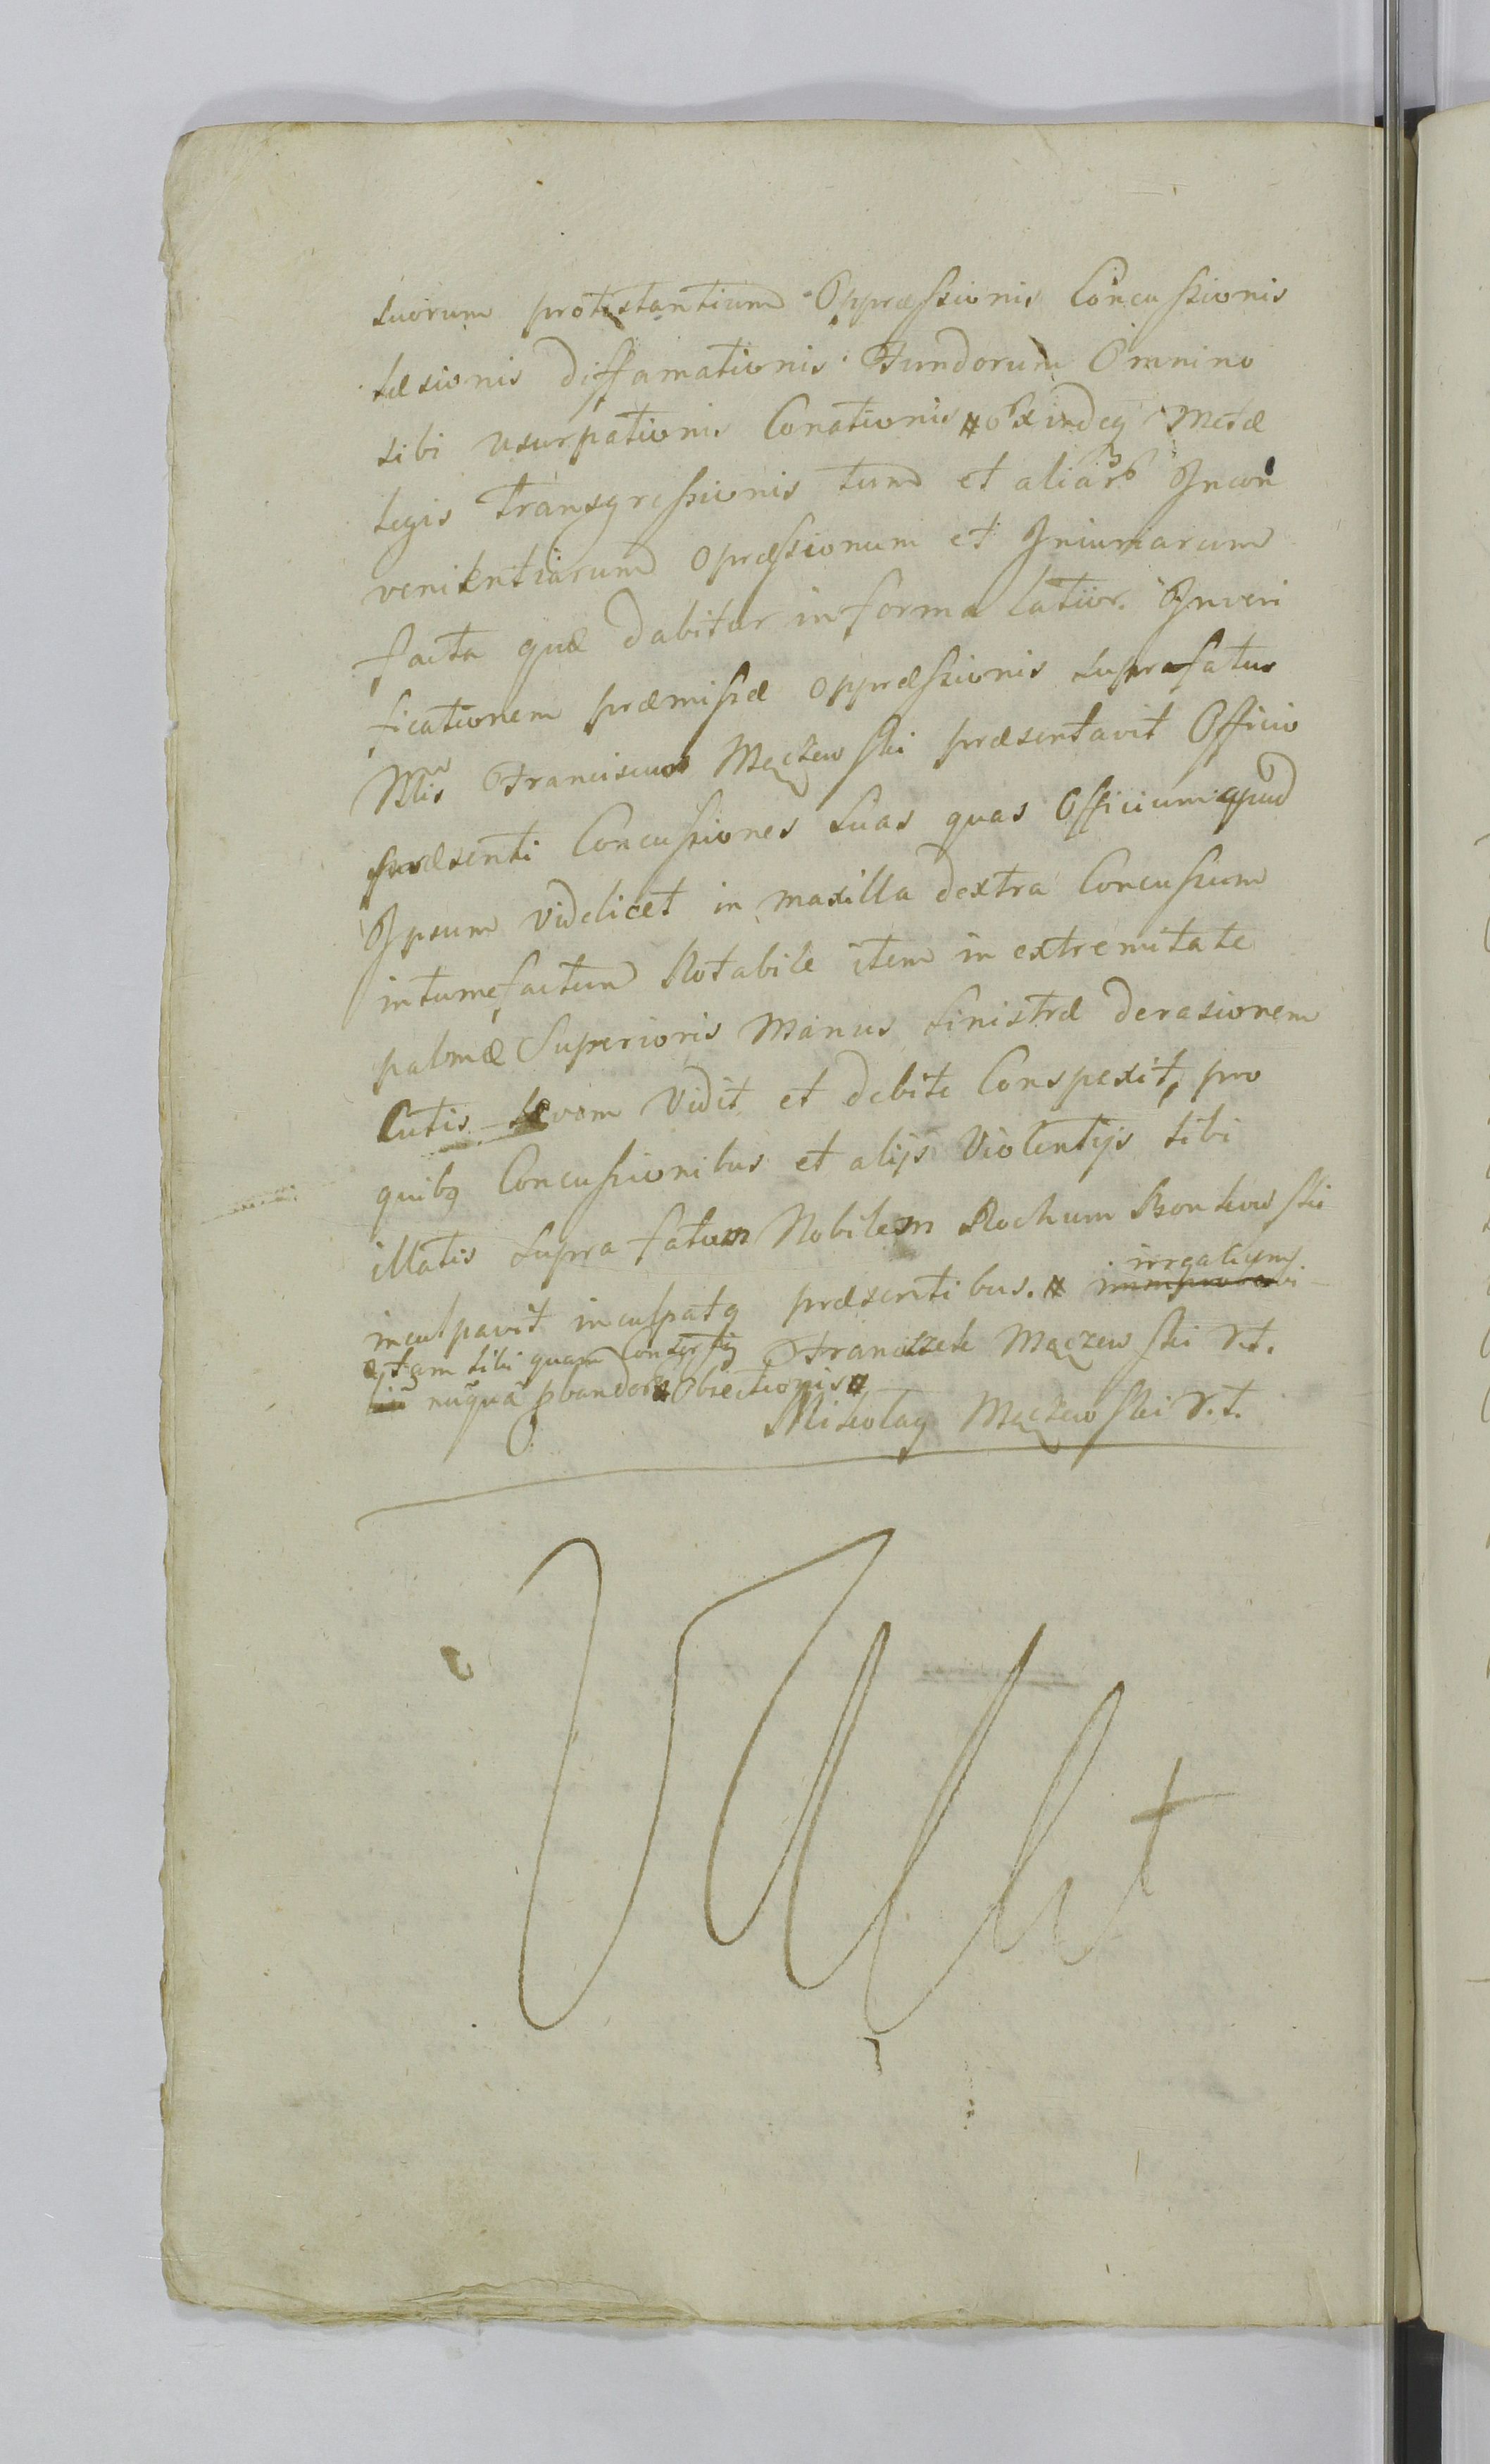 suorum protestantium Oppræssionis Concussionis
læsionis diffamationis Fundorum Omnino
sibi usurpationis Conationis # Exindeq Metæ
legis transgressionis tum et aliarū Incon
venientiarum opræssionum et Iniuriarum
facta quæ dabitur in forma latior. Inveri
ficationem præmissæ oppræssionis suprafatus
Franciscus Męczewski præsentavit Officio
præsenti Concussiones suas quas Officium apud
Ipsum videlicet in maxilla dextra Concussum
intumefactum Notabile item in extremitate
palmæ Superioris Manus sinistræ derasionem
Cutis vidit et debite Conspexit, pro
quibq Concussionibus et alijs Violentijs sibi
illatis supra fatum Nobilem Rochum
inculpavit inculpatq præsentibus. #
tam sibi quam Franciszek Męczewski
nuquā obiectionis #
Mikołay Męczewski